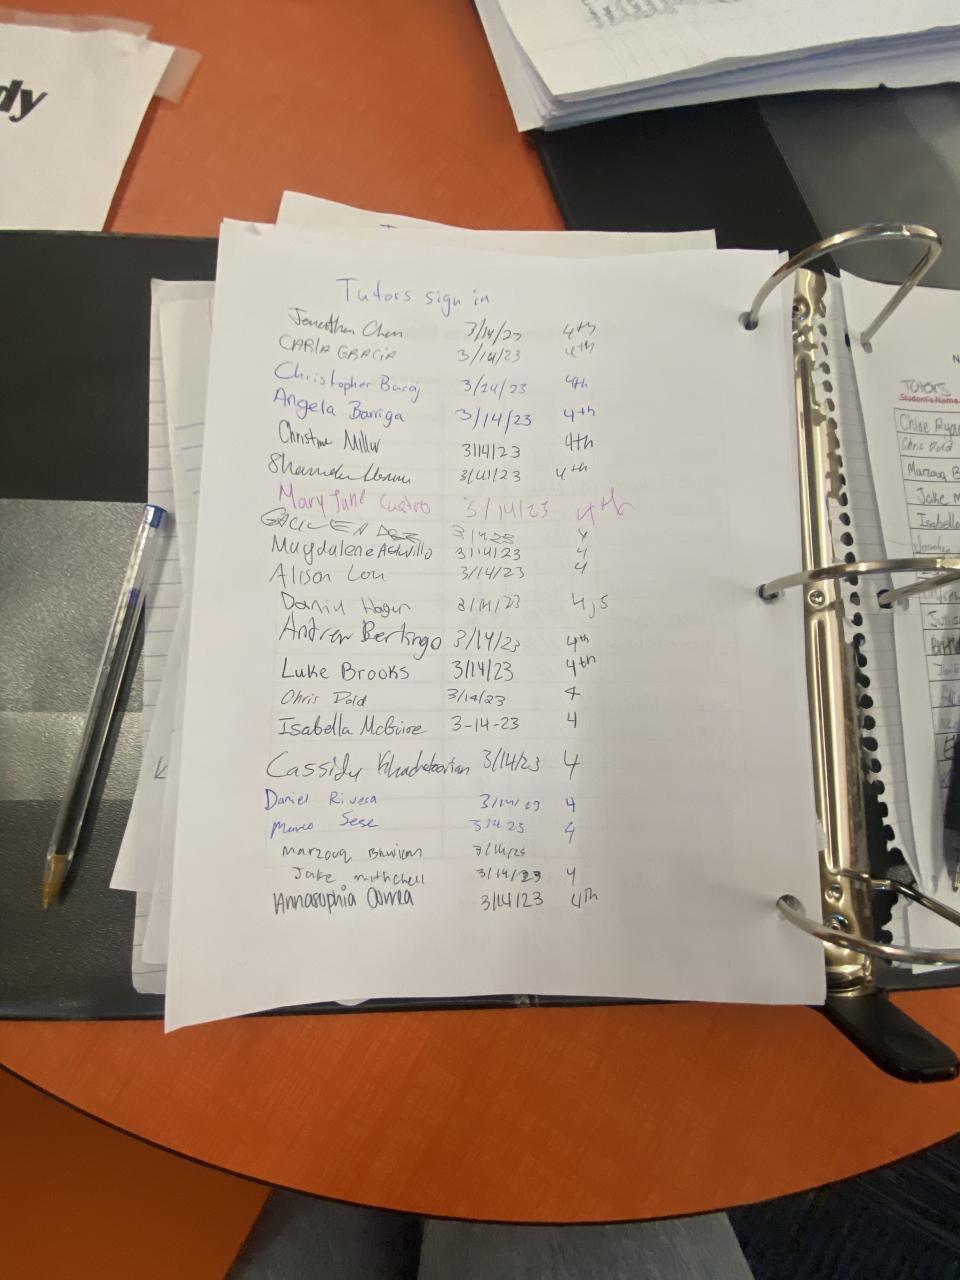 dy
Tutors sign in
Jonathan Chen 3/14/23 4th
CARLA GRACIA 3/14/23 4th
Christopher 3/14/23 4th
Angela Barriga 3/14/23 4th
Christine Miller 3/14/23 4th
3/14/23 4th
Mary June Castro 3/14/23 4th
3/14/23 4
Magdalene 3/14/23 4
Alison Lou 3/14/23 4
Daniel Hager 3/14/23 4,5
Andrew Bertingo 3/14/23 4th
Luke Brooks 3/14/23 4th
Chris Dold 3/14/23 4
Isabella McGuire 3-14-23 4
Cassidy 3/14/23 4
Daniel Rivera 3/14/23 4
Marco Sese 3 14 23 4
Marzouq 3/14/23
Jake mithchell 3/14/23 4
Annasophia Correa 3/14/23 4th
TUTORS
Student's Name
Chloe Ryan
Chris Dold
Marzouq B
Jake M
Isabella